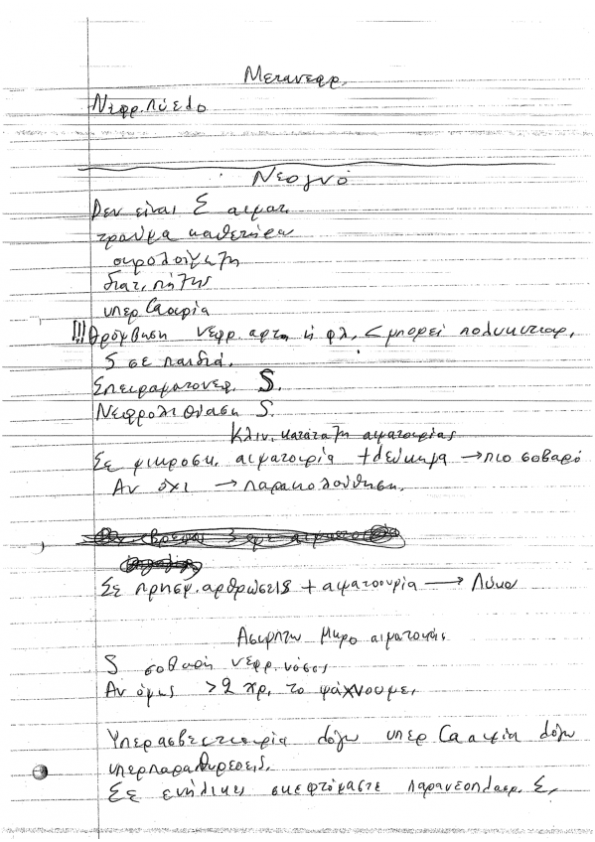 Μετανεφρ.
Νεφρ. πύελο
Νεογνό
Δεν είναι Σ αιματ.
τραύμα καθετήρα
ουρολοίμωξη
διατ. πήξης
υπερCaιμία
!!! Θρόμβωση νεφρ. αρτ. ή φλ. < μπορεί πολυκυτταρ.
S σε παιδιά.
Σπειραματονεφ. S.
Νεφρολιθίαση S.
Κλιν. κατάταξη αιματουρίας
Σε μικροσκ. αιματουρία + λεύκωμα → πιο σοβαρό
Αν όχι → παρακολούθηση.
Σε πρησμ. αρθρώσεις + αιματουρία → Λύκο
Ασυμπτω Μικρο αιματουρίας
S σοβαρή νεφρ. νόσος
Αν όμως >2 χρ. το ψάχνουμε.
Υπερασβεστιουρία λόγω υπερCaιμία λόγω
υπερπαραθυρεοειδ.
Σε ενήλικες σκεφτόμαστε παρανεοπλασμ. Σ.